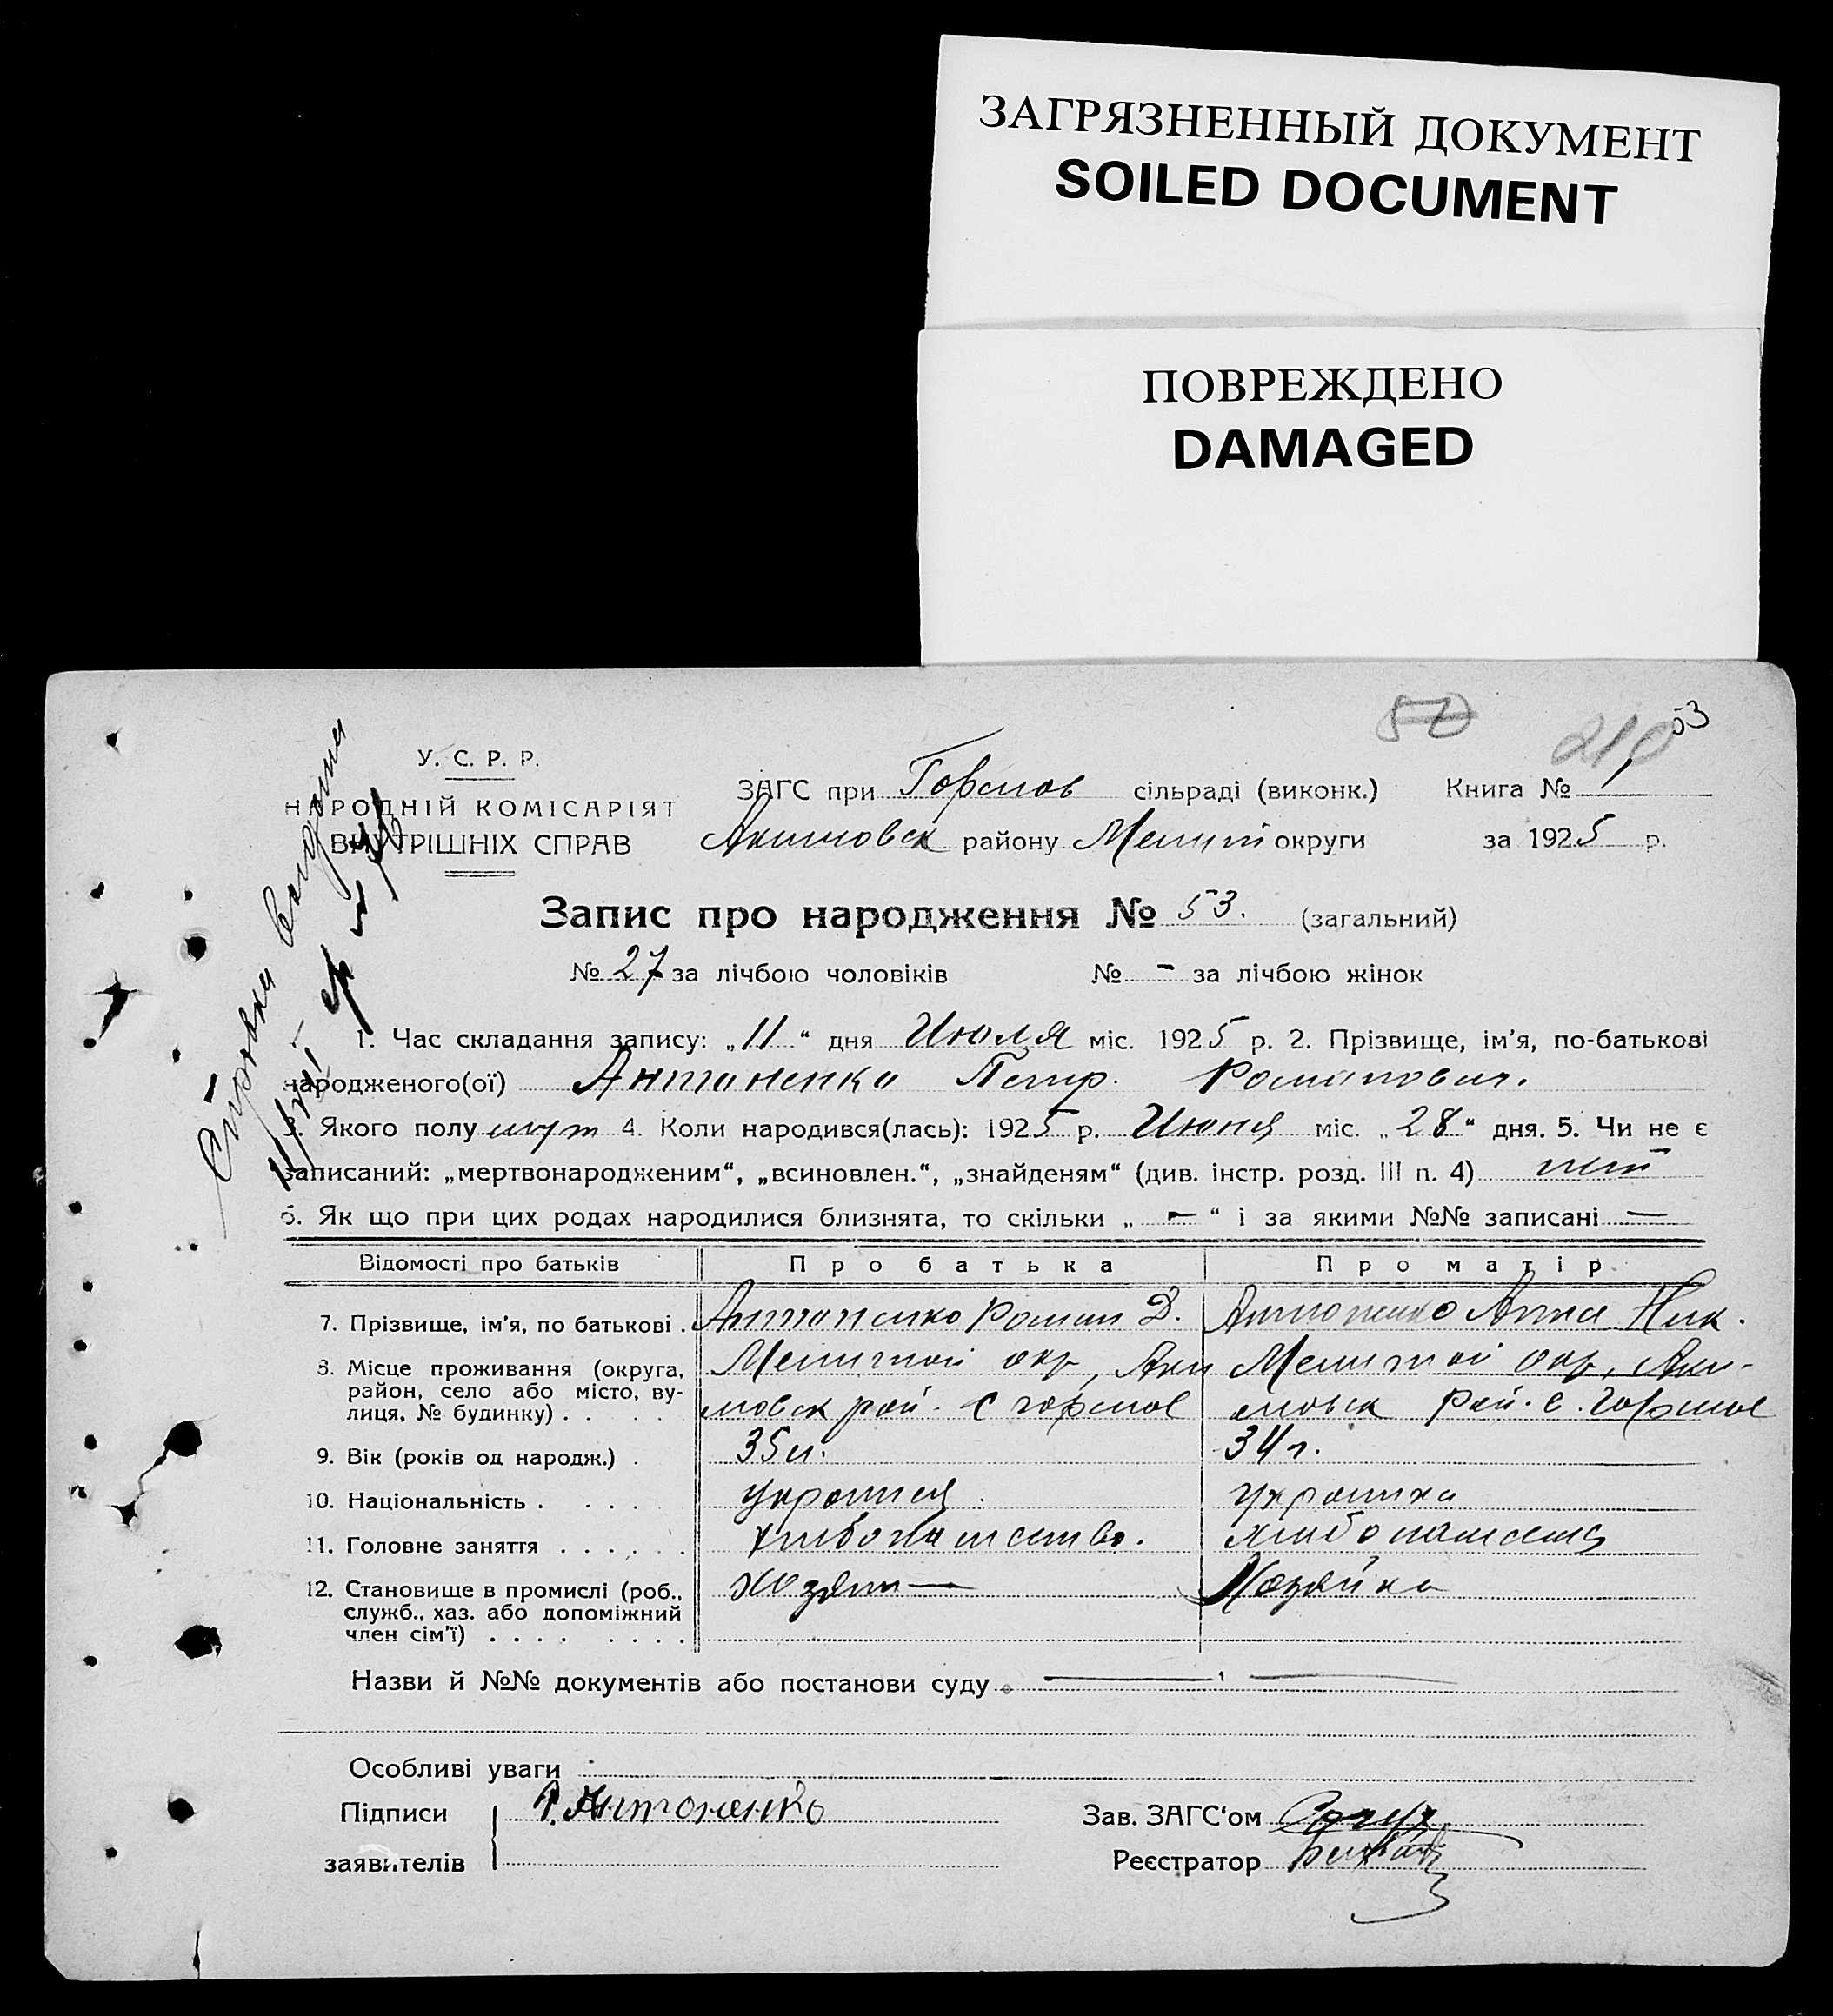 ЗАГРЯЗНЕННЫЙ ДОКУМЕНТ
SOILED DOCUMENT
ПОВРЕЖДЕНО
DAMAGED
50
210
53
У. С. Р. Р.
НАРОДНІЙ КОМІСАРІЯТ
ВНУТРІШНІХ СПРАВ
ЗАГС при Горсмов сільраді (виконк.) Книга № 1
Акимовск района Мелит округи за 1925 р.
Запис про народження № 53. (загальний)
№ 27 за лічбою чоловіків № - за лічбою жінок
1. Час складання запису: „11“ дня Июля міс. 1925 р. 2. Прізвище, ім'я, по-батькові
народженого(ої) Антоненко Петр. Романович.
3. Якого полу муж 4. Коли народився(лась): 1925 р. Июня міс. „28“ дня. 5. Чи не є
записаний: „мертвонародженим“, „всиновлен.“, „знайденям“ (див. інстр. розд. III п. 4) нет
6. Як що при цих родах народилися близнята, то скільки „ — “ і за якими №№ записані —
Відомості про батьків Про батька Про матір
7. Прізвище, ім'я, по батькові . Антоненко Роман Д. Антоненко Анна Ник.
8. Місце проживання (округа, Мелитпой окр, Аки Мелитпой окр, Аки-
район, село або місто, ву- мовск рай. с горсмов мовск рай. с. Горсмов
лиця, № будинку) . . . .
9. Вік (років од народж.) . 35 л. 34 г.
10. Національність . . . . украинец. украинка
11. Головне заняття . . . . . . хлибопашество. хлибопашеств
12. Становище в промислі (роб., хозяин — Хозяйка
служб., хаз. або допоміжний
член сім'ї) . . . . . . . .
Назви й №№ документів або постанови суду
Особливі уваги
Підписи Р. Антоненко Зав. ЗАГС'ом
заявителів Реєстратор